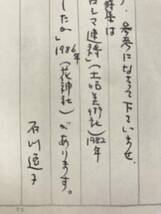 参考になさって下さいませ。
詩集は
して連詩」(土曜美術社)1982
したの」1986年(花神社)があります。
石川逸子